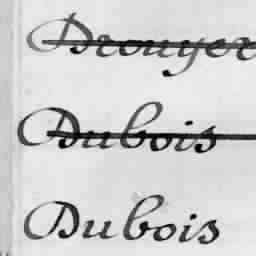 Drouyer
Dubois
Dubois